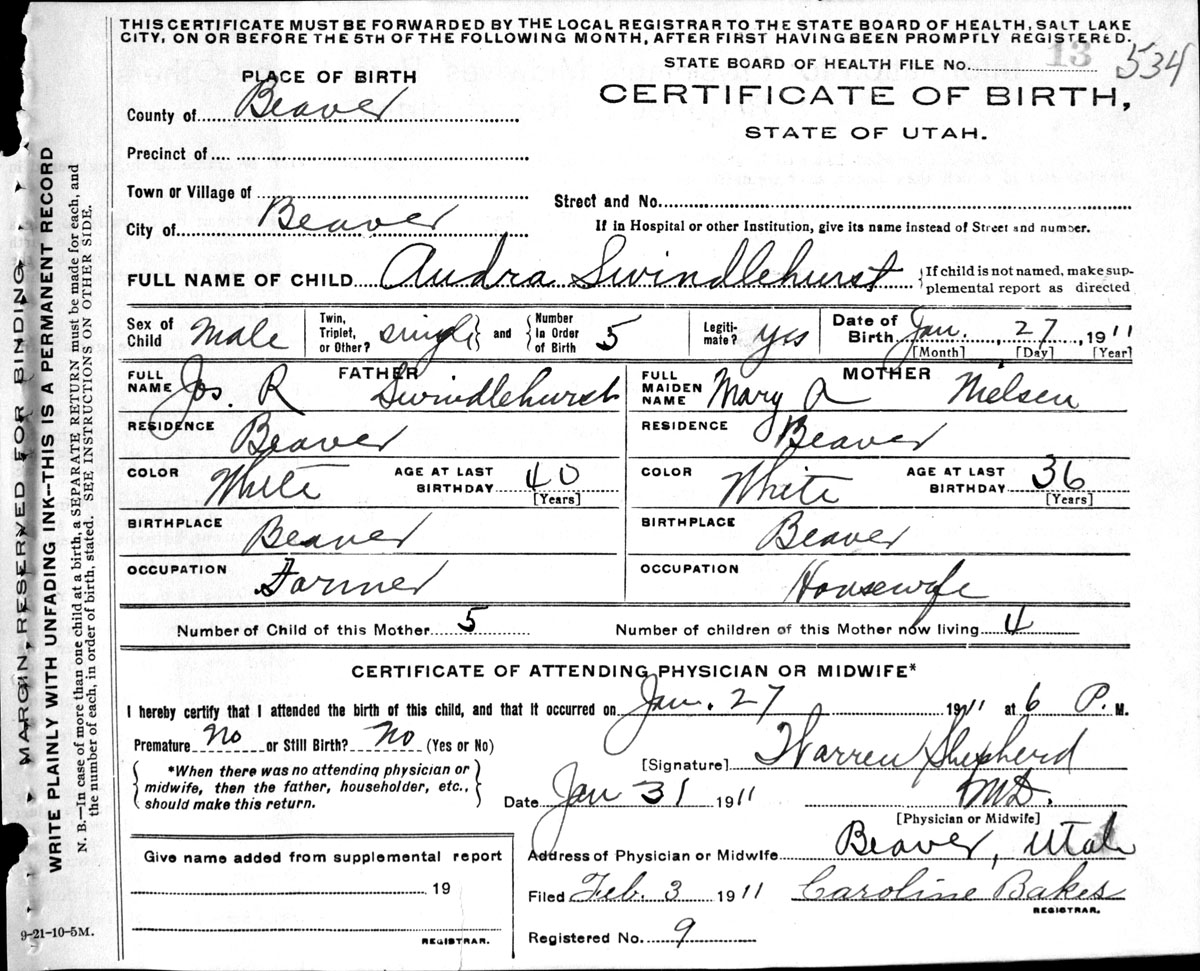 THIS CERTIFICATE MUST BE FORWARDED BY THE LOCAL REGISTRAR TO THE STATE BOARD OF HEALTH, SALT LAKE
CITY, ON OR BEFORE THE 5TH OF THE FOLLOWING MONTH, AFTER FIRST HAVING BEEN PROMPTLY REGISTERED.
STATE BOARD OF HEALTH FILE No. 13 534
PLACE OF BIRTH
CERTIFICATE OF BIRTH,
County of Beaver
STATE OF UTAH.
Precinct of
Town or Village of
Street and No.
City of Beaver
If in Hospital or other Institution, give its name instead of Street and number.
FULL NAME OF CHILD Audra Swindlehurst {If child is not named, make sup-
plemental report as directed
Sex of Child Male Twin, Triplet, or Other? single and Number in Order of Birth 5 Legiti-mate? yes Date of Birth Jan. 27, 1911
[Month] [Day] [Year]
FATHER MOTHER
FULL NAME Jos. R Swindlehurst FULL MAIDEN NAME Mary A Nielsen
RESIDENCE Beaver RESIDENCE Beaver
COLOR White AGE AT LAST BIRTHDAY 40 [Years] COLOR White AGE AT LAST BIRTHDAY 36 [Years]
BIRTHPLACE Beaver BIRTHPLACE Beaver
OCCUPATION Farmer OCCUPATION Housewife
Number of Child of this Mother 5 Number of children of this Mother now living 4
CERTIFICATE OF ATTENDING PHYSICIAN OR MIDWIFE*
I hereby certify that I attended the birth of this child, and that it occurred on Jan. 27 1911 at 6 P. M.
Premature No or Still Birth? No (Yes or No)
[Signature] Warren Shepherd
{*When there was no attending physician or
midwife, then the father, householder, etc.,
should make this return.}
Date Jan 31 1911 M.D.
[Physician or Midwife]
Give name added from supplemental report
Address of Physician or Midwife Beaver, Utah
19
Filed Feb. 3 1911 Caroline Bakes
REGISTRAR.
REGISTRAR.
Registered No. 9
9-21-10-5M.
MARGIN RESERVED FOR BINDING
WRITE PLAINLY WITH UNFADING INK—THIS IS A PERMANENT RECORD
N. B.—In case of more than one child at a birth, a SEPARATE RETURN must be made for each, and
the number of each, in order of birth, stated. SEE INSTRUCTIONS ON OTHER SIDE.